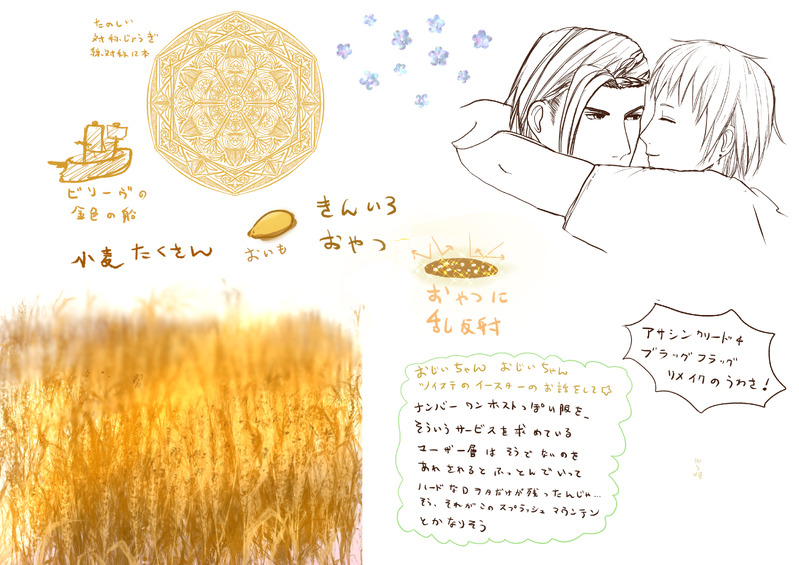 たのしい
対称じょうぎ
線対称12本
ビリーヴの
金色の船
きんいろ
おやつ
おいも
小麦たくさん
おやつに
乱反射
アサシンクリード4
ブラッグフラッグ
リメイクのうわさ!
おじいちゃん おじいちゃん
ツイステのイースターのお話をして
ナンバーワンホストっぽい服を、
そういうサービスを求めている
ユーザー層はそうでないのを
あれされるとふっとんでいって
ハードなDヲタだけが残ったんじゃ…
そう、それがこのスプラッシュマウンテン
とかなりそう